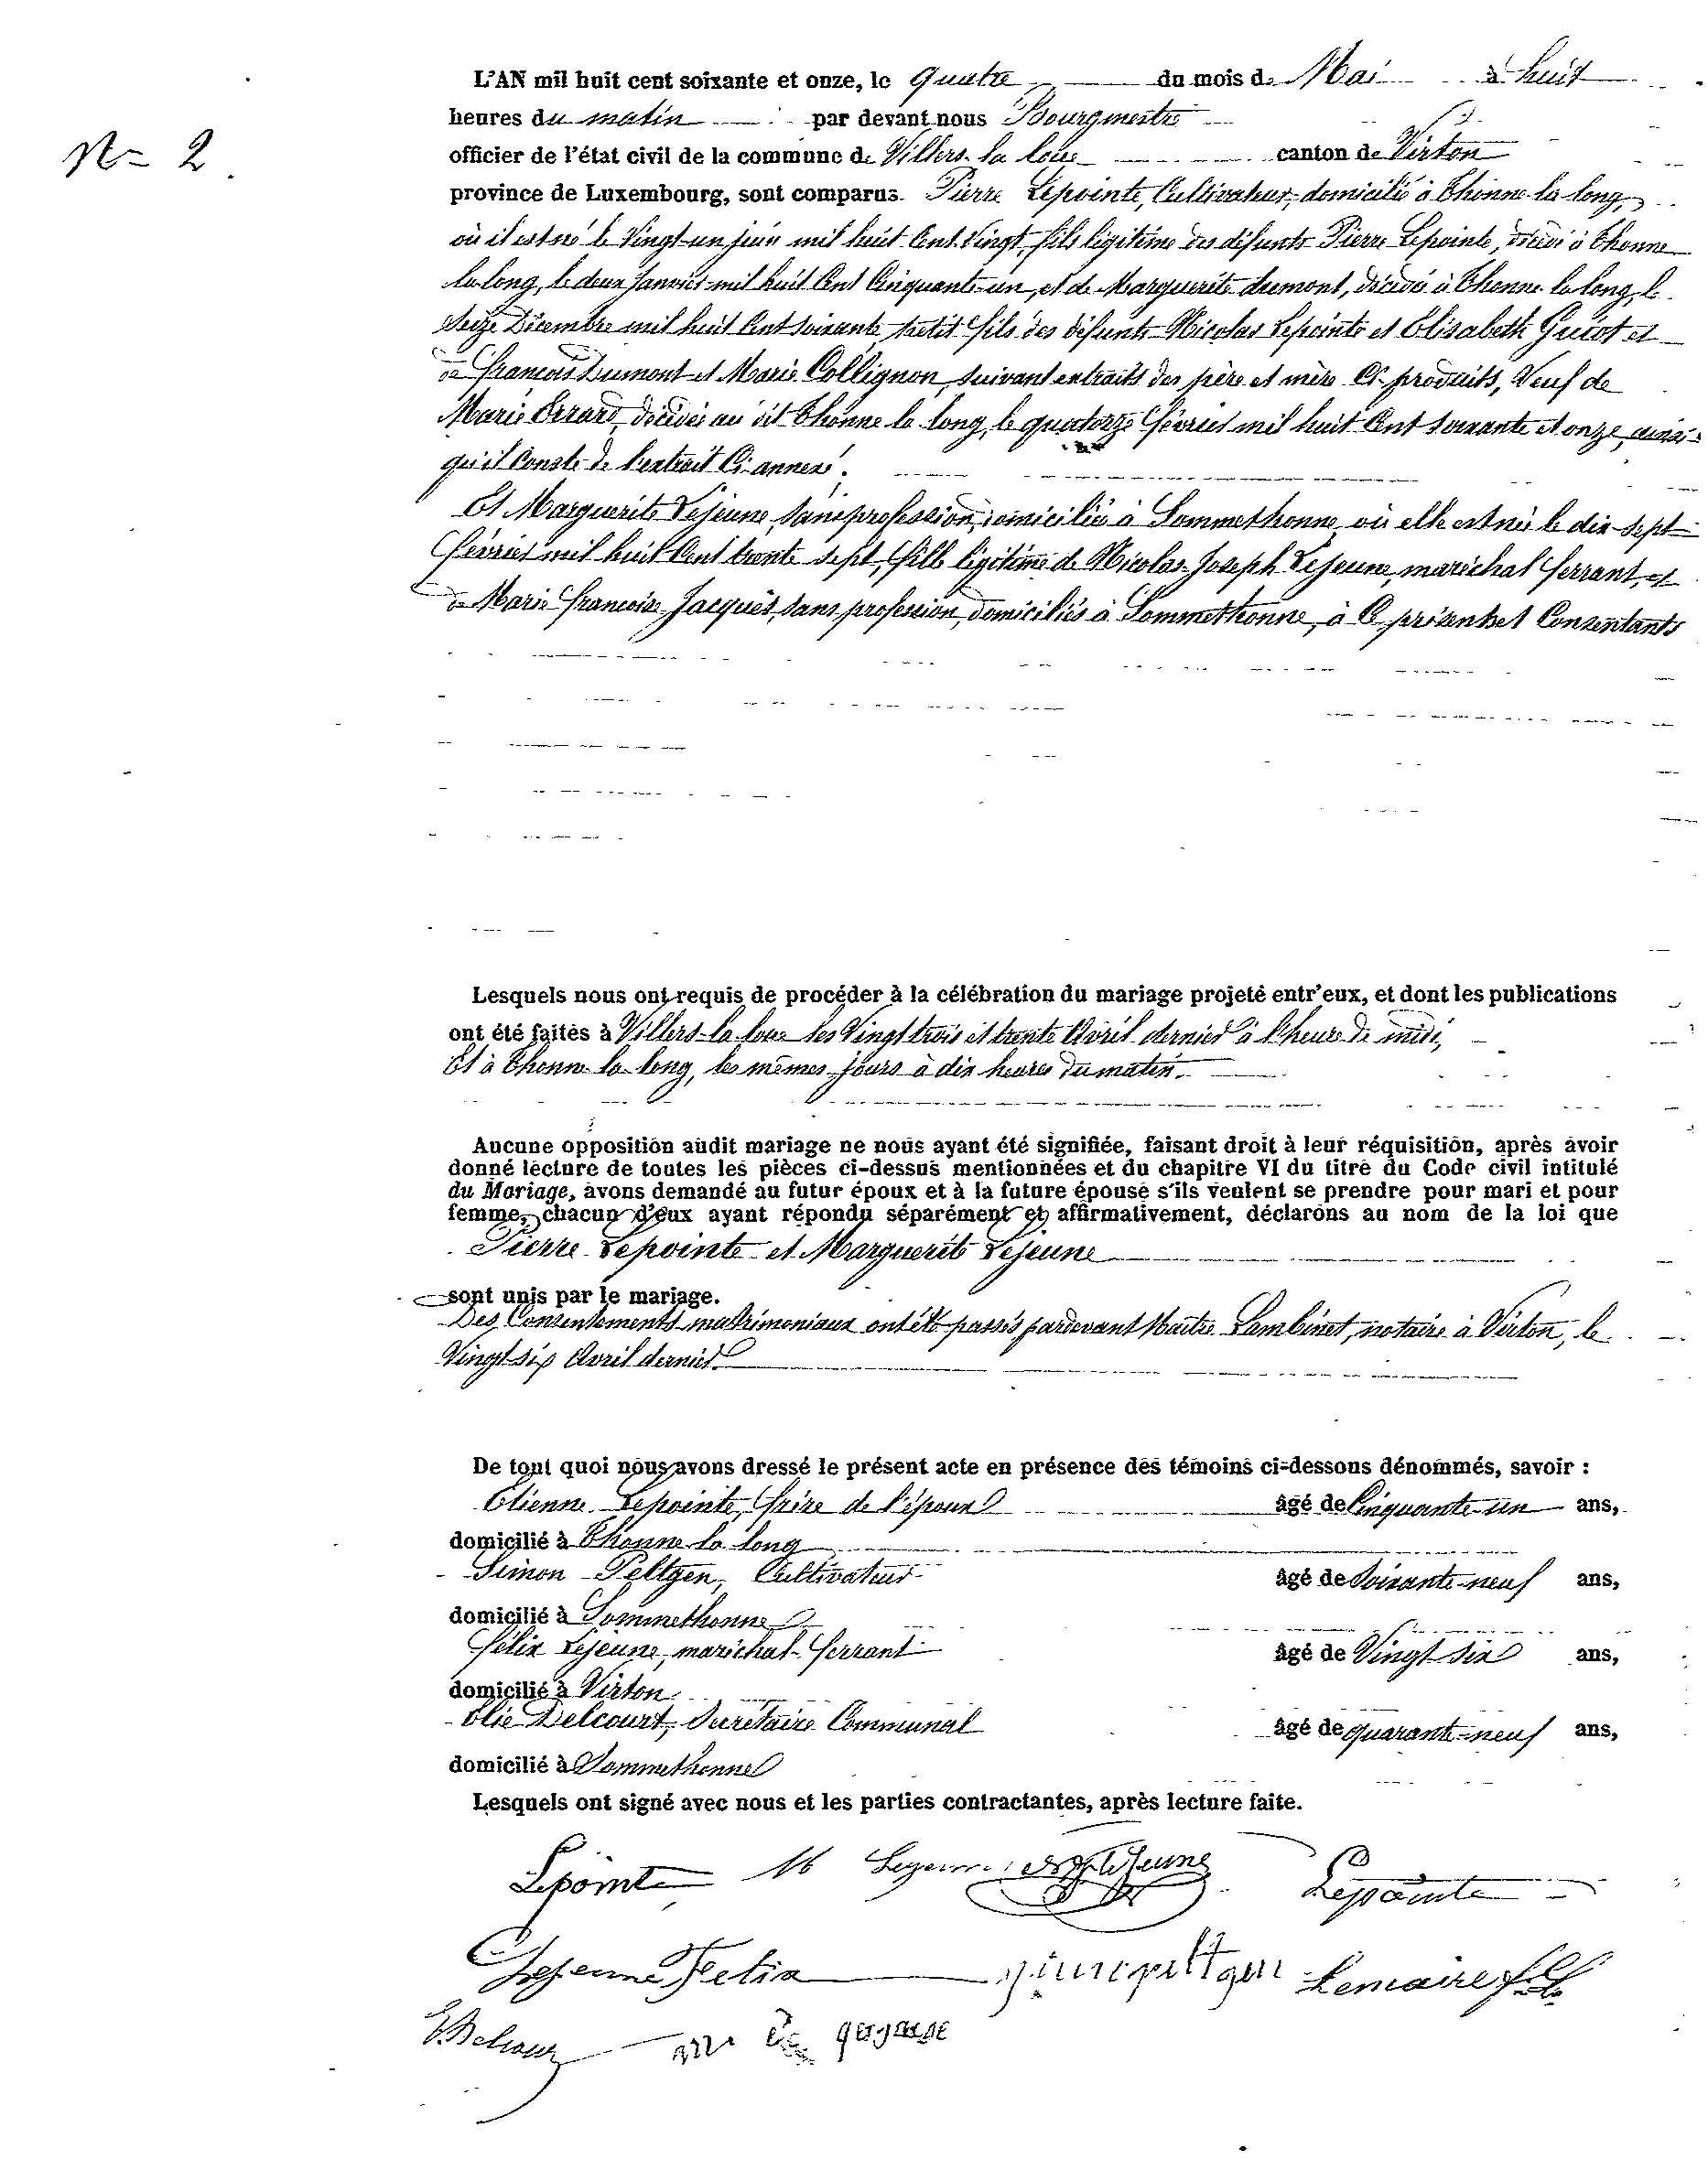 N= 2.
L'AN mil huit cent soixante et onze, le quatre du mois de Mai à huit
heures du matin par devant nous Bourgmestre
officier de l'état civil de la commune de Villers-la-loue canton de Virton
province de Luxembourg, sont comparus Pierre Lepointe, Cultivateur, domicilié à Thonne-la-long,
où il est né le Vingt-un juin mil huit Cent Vingt, fils légitime des défunts Pierre Lepointe, décédé à Thonne
la-long, le deux Janvier mil huit Cent Cinquante-un, et de Marguerite dumont, décédée à Thonne-la-long, le
Seize Décembre mil huit Cent soixante, petit-fils des défunts Nicolas Lepointe et Elisabeth Guiot et
de François Dumont et Marie Collignon, suivant extraits des père et mère Ci-produits, Veuf de
Marie Errard, décédée au dit Thonne-la-long, le quatorze février mil huit Cent soixante et onze, ainsi
qu'il Conste de l'extrait Ci-annexé.
Et Marguerite Lejeune, sans profession, domiciliée à Sommethonne, où elle est née le dix-sept
février mil huit Cent trente-sept, fille légitime de Nicolas-Joseph Lejeune, maréchal ferrant, et
de Marie françoise Jacques, sans profession, domiciliés à Sommethonne, à Ce présents et Consentants
Lesquels nous ont requis de procéder à la célébration du mariage projeté entr'eux, et dont les publications
ont été faites à Villers-la-loue les Vingt trois et trente Avril dernier à l'heure de midi,
Et à Thonne-la-long, les mêmes jours à dix heures du matin.
Aucune opposition audit mariage ne nous ayant été signifiée, faisant droit à leur réquisition, après avoir
donné lecture de toutes les pièces ci-dessus mentionnées et du chapitre VI du titre du Code civil intitulé
du Mariage, avons demandé au futur époux et à la future épouse s'ils veulent se prendre pour mari et pour
femme, chacun d'eux ayant répondu séparément et affirmativement, déclarons au nom de la loi que
Pierre Lepointe et Marguerite Lejeune
sont unis par le mariage.
Des Consentements matrimoniaux ont été passés pardevant Maître Lambinet, notaire à Virton, le
Vingt-six Avril dernier.
De tout quoi nous avons dressé le présent acte en présence des témoins ci-dessous dénommés, savoir :
Etienne Lepointe, frère de l'époux âgé de Cinquante-un ans,
domicilié à Thonne-la-long
Simon Peltgen, Cultivateur âgé de Soixante-neuf ans,
domicilié à Sommethonne
félix Lejeune, maréchal-ferrant âgé de Vingt-six ans,
domicilié à Virton
Elie Delcourt, Secrétaire Communal âgé de quarante-neuf ans,
domicilié à Sommethonne
Lesquels ont signé avec nous et les parties contractantes, après lecture faite.
Lepointe M Lejeune Lejeune Lepointe
Lejeune Felix peltgen Lemaire
E Delcour